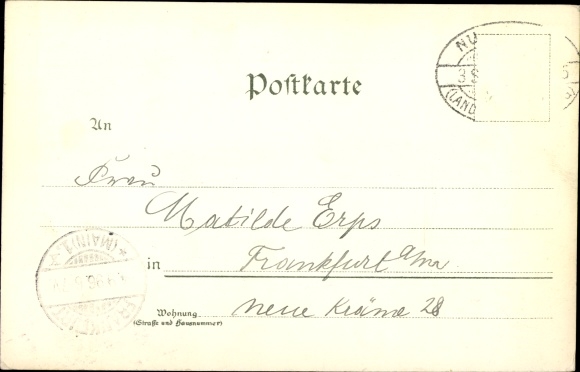 Postkarte
NU
(LAND
An
Frau
Matilde Erps
in Frankfurt a/m
Wohnung
(Straße und Hausnummer)
Neue Kräme 28
(MAIN) 1